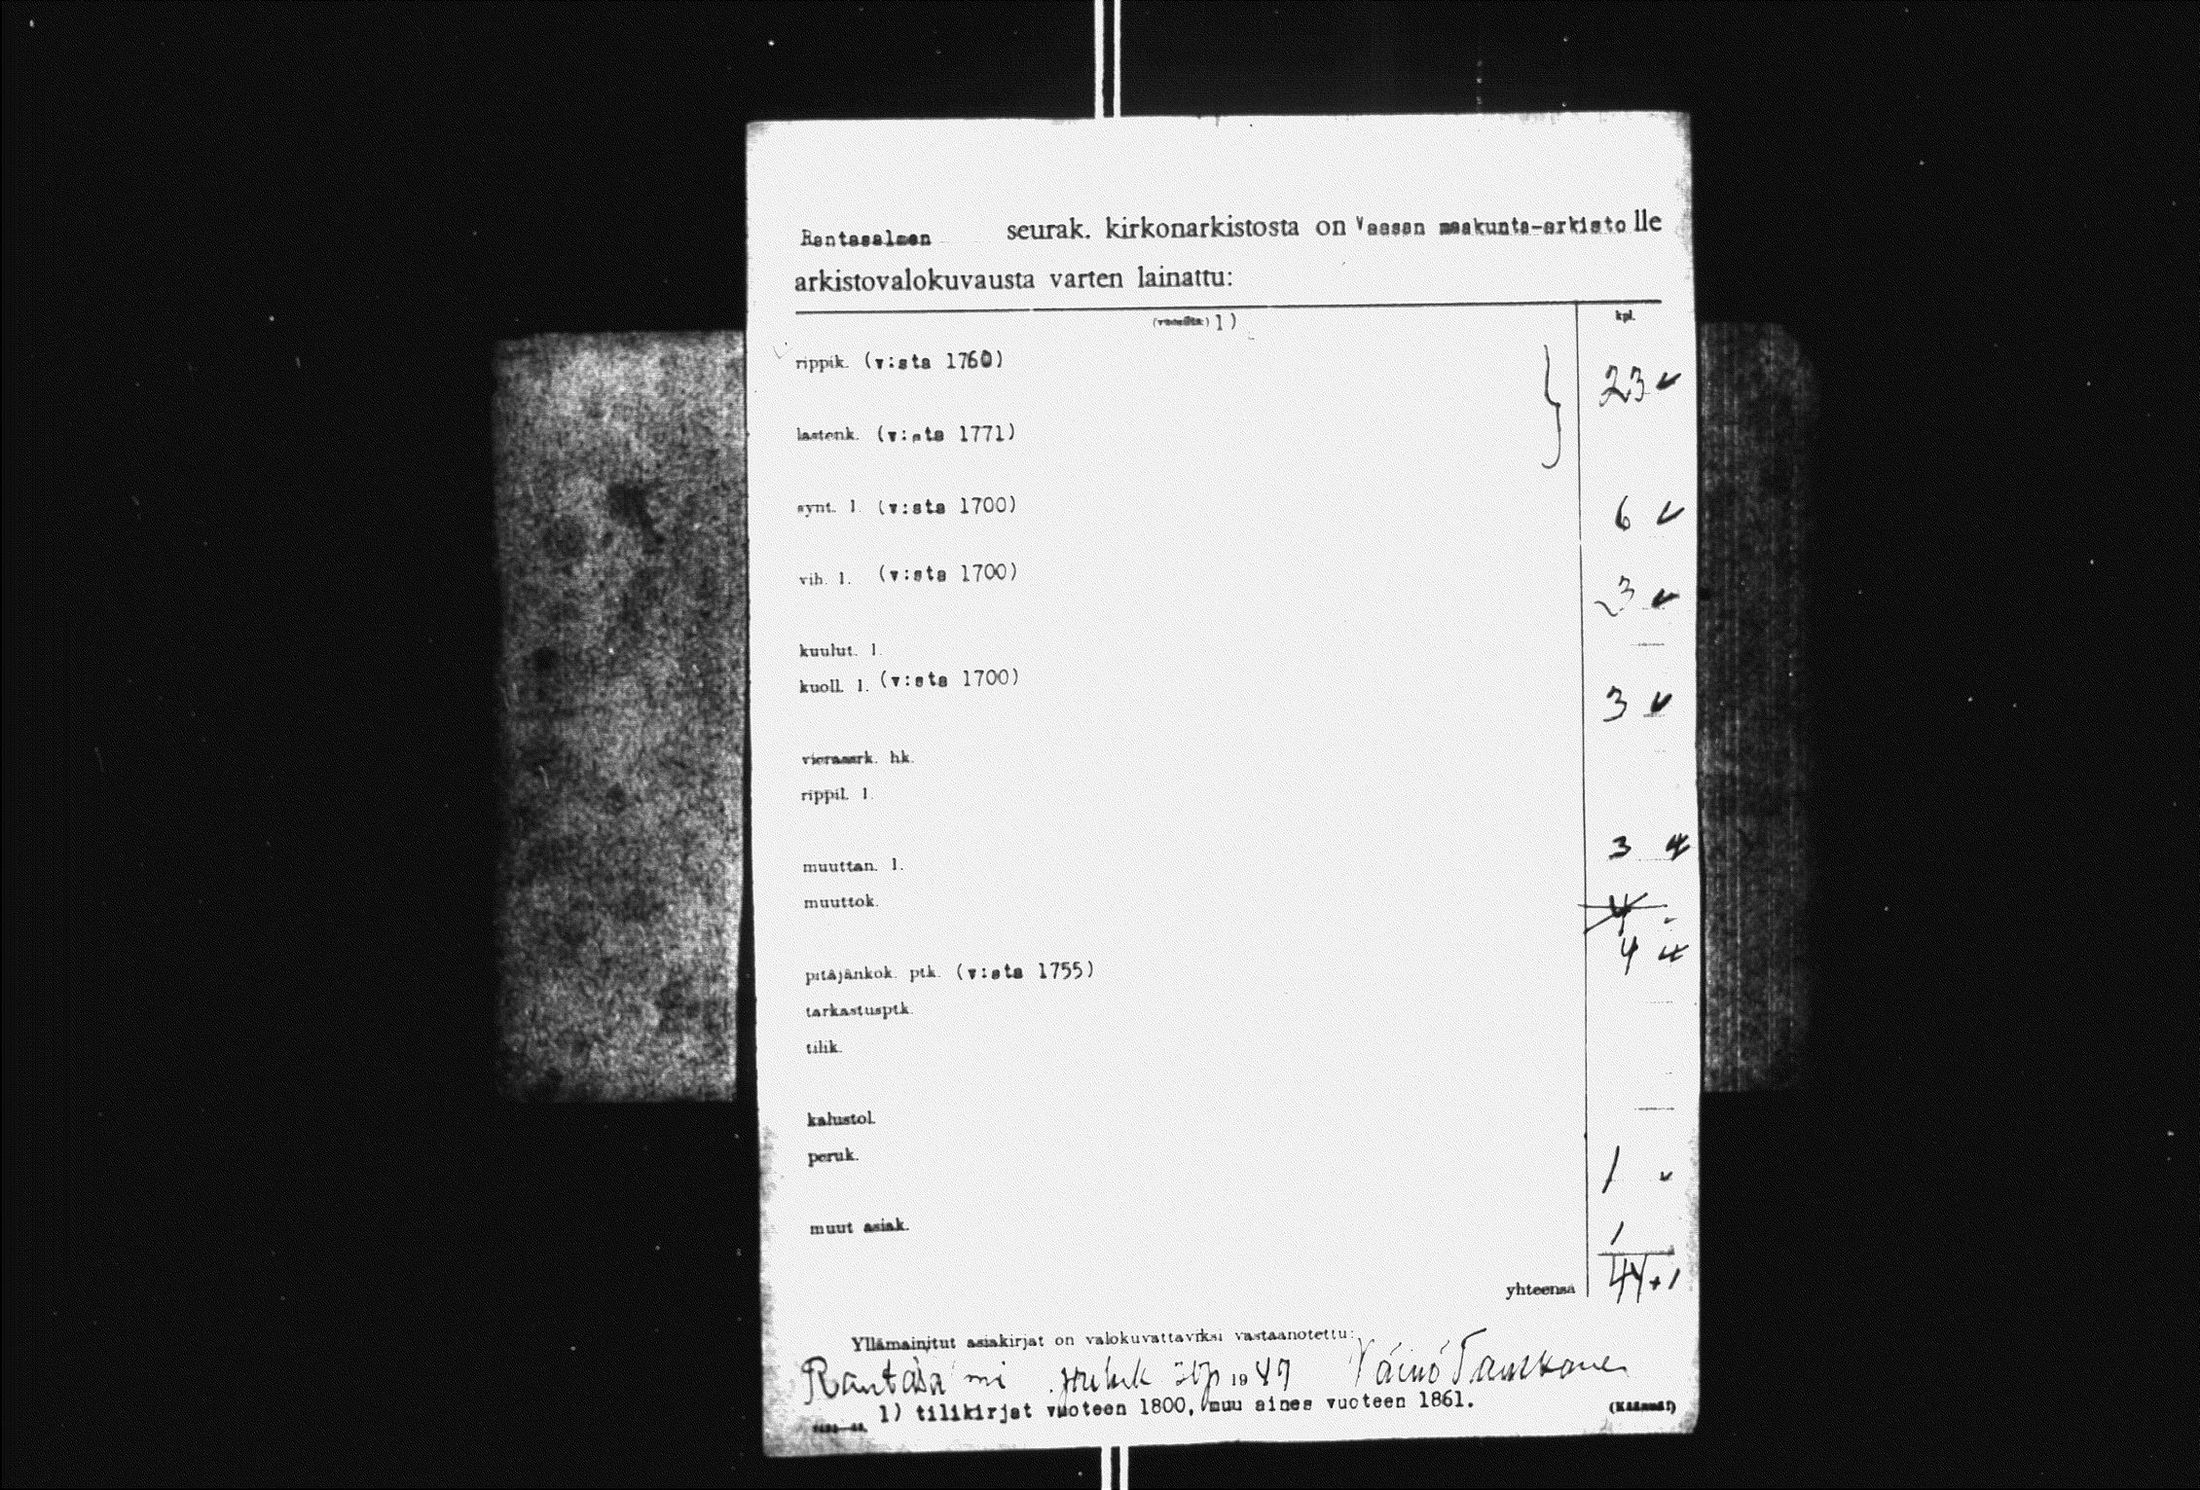 Rantasalmen seurak. kirkonarkistosta on Vaasan maakunta-arkisto lle
arkistovalokuvausta varten lainattu:
(vuosilta) 1) kpl.
rippik. (v:sta 1760) 23 ✓
lastenk. (v:sta 1771)
synt. l. (v:sta 1700) 6 ✓
vih. l. (v:sta 1700) 3 ✓
kuulut. l.
kuoll. l. (v:sta 1700) 3 ✓
vierasark. hk.
rippil. l.
muuttan. l. 3 4
muuttok. 4
pitäjänkok. ptk. (v:sta 1755) 4
tarkastusptk.
tilik.
kalustol.
peruk. 1 ✓
muut asiak. 1
yhteensä 44+1
Yllämainitut asiakirjat on valokuvattaviksi vastaanotettu:
1947 Väinö
1) tilikirjat vuoteen 1800, muu aines vuoteen 1861.
(Käännä!)